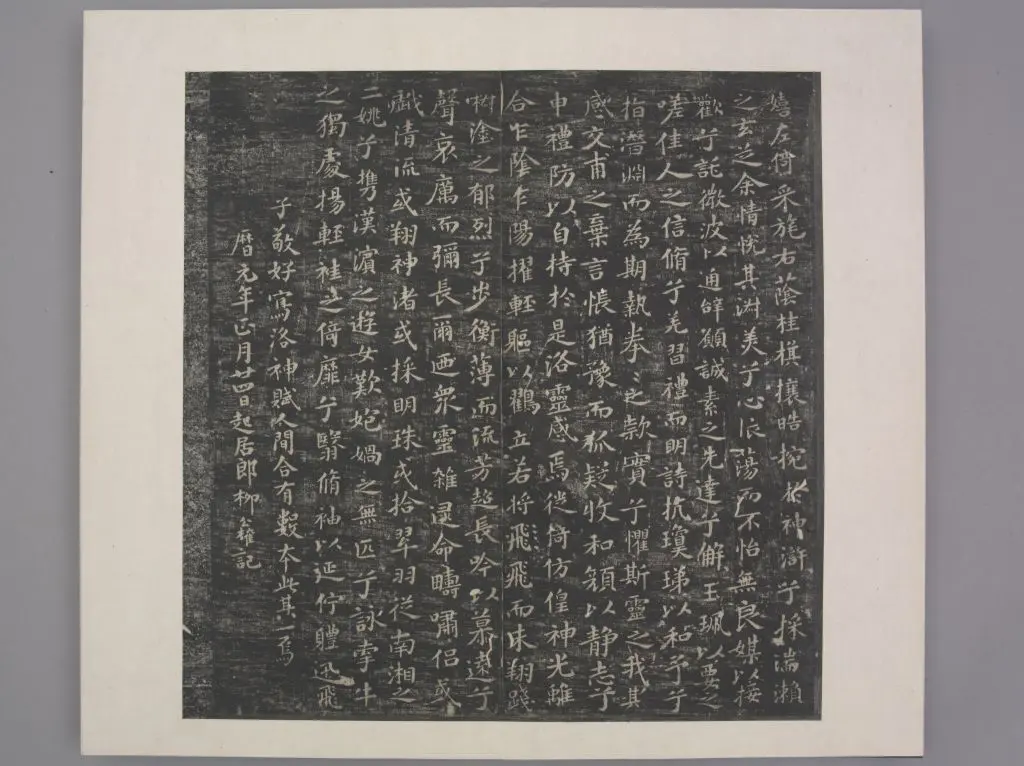 倚左倚采旄右蔭桂棋攘皓捥於神滸兮採湍瀨
之玄芝余情悅其淑美兮心振蕩而不怡無良媒以接
歡兮託微波以通辭願誠素之先達兮解玉珮以要之
嗟佳人之信脩兮羌習禮而明詩抗瓊珶以和予兮
指潛淵而為期執拳〻之款實兮懼斯靈之我其
感交甫之棄言悵猶豫而狐疑收和顏以靜志兮
申禮防以自持於是洛靈感焉徙倚仿偟神光離
合乍陰乍陽擢輕軀以鶴立若將飛飛而未翔踐
椒塗之郁烈兮步衡薄而流芳超長吟以慕遠兮
聲哀厲而彌長爾迺眾靈雜遝命疇嘯侶或
戲清流或翔神渚或採明珠或拾翠羽從南湘之
二姚兮攜漢濱之遊女歎匏媧之無匹兮詠牽牛
之獨處揚輕袿之倚靡兮翳脩袖以延佇體迅飛
子敬好寫洛神賦人間合有數本此其一焉
曆元年正月廿四日起居郎柳公權記